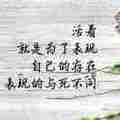 活着
就是为了表现
自己的存在
表现的与死不同